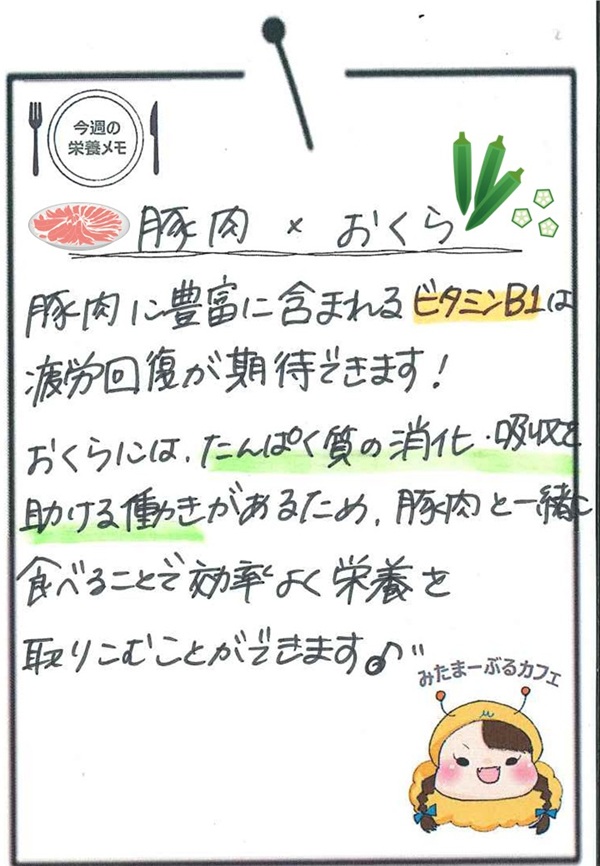 今週の
栄養メモ
豚肉 × おくら
豚肉に豊富に含まれるビタミンB1は
疲労回復が期待できます!
おくらには、たんぱく質の消化・吸収を
助ける働きがあるため、豚肉と一緒に
食べることで効率よく栄養を
取りこむことができます♪"
みたまーぶるカフェ